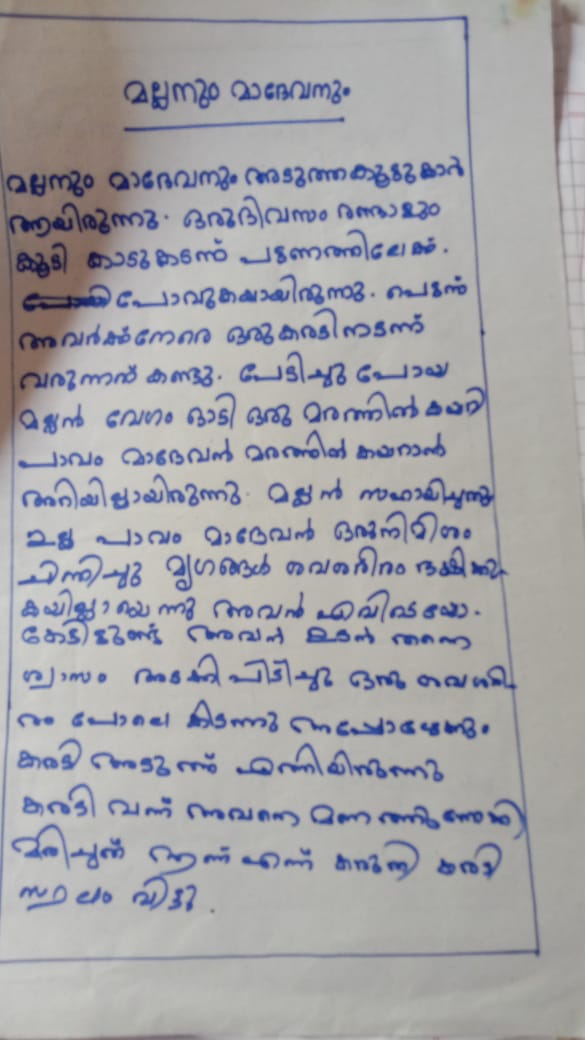 മല്ലനും മാദേവനും
മല്ലനും മാദേവനും അടുത്തകൂട്ടുകാർ
ആയിരുന്നു. ഒരുദിവസം രണ്ടാളും
കൂടി കാടുകടന്ന് പട്ടണത്തിലേക്ക്.
പോവുകയായിരുന്നു. പെട്ടന്ന്
അവർക്ക്നേരെ ഒരുകരടിനടന്ന്
വരുന്നത് കണ്ടു. പേടിച്ചു പോയ
മല്ലൻ വേഗം ഓടി ഒരു മരത്തിൽ കയറി
പാവം മാദേവൻ മരത്തിൽ കയറാൻ
അറിയില്ലായിരുന്നു. മല്ലൻ സഹായിച്ചുന്നു
മല്ല പാവം മാദേവൻ ഒരുനിമിശം
ചിന്തിച്ചു മൃഗങ്ങൾ ശവശരീരം ഭക്ഷിക്കു
കയില്ലായെന്നു അവൻ എവിടയോ.
കേട്ടിട്ടുണ്ട് അവൻ ഉടൻ തന്നെ
ശ്വാസം അടക്കി പിടിച്ചു ഒരു ശവശരീ
രം പോലെ കിടന്നു അപ്പോഴേക്കും
കരടി അടുത്ത് എത്തിയിരുന്നു
കരടി വന്ന് അവനെ മണത്തുനോക്കി
മരിച്ചത് ആണ് എന്ന് കരുതി കരടി
സ്ഥലം വിട്ടു.